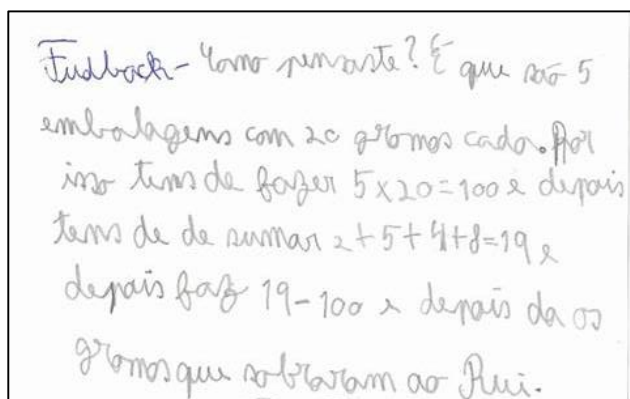 Fudback- Como pensaste? É que são 5
embalagens com 20 gramas cada. Por
isso tens de fazer 5x20=100 e depois
tens de de sumar 2+5+4+8=19 e
depois faz 19-100 e depois da os
gramas que sobraram ao Rui.